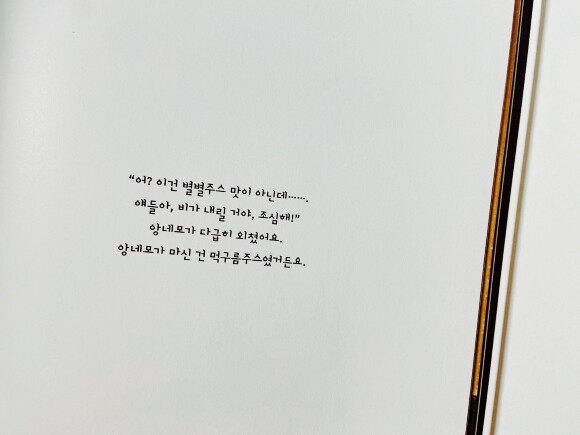 “어? 이건 별별주스 맛이 아닌데…….
얘들아, 비가 내릴 거야, 조심해!”
앙네모가 다급히 외쳤어요.
앙네모가 마신 건 먹구름주스였거든요.